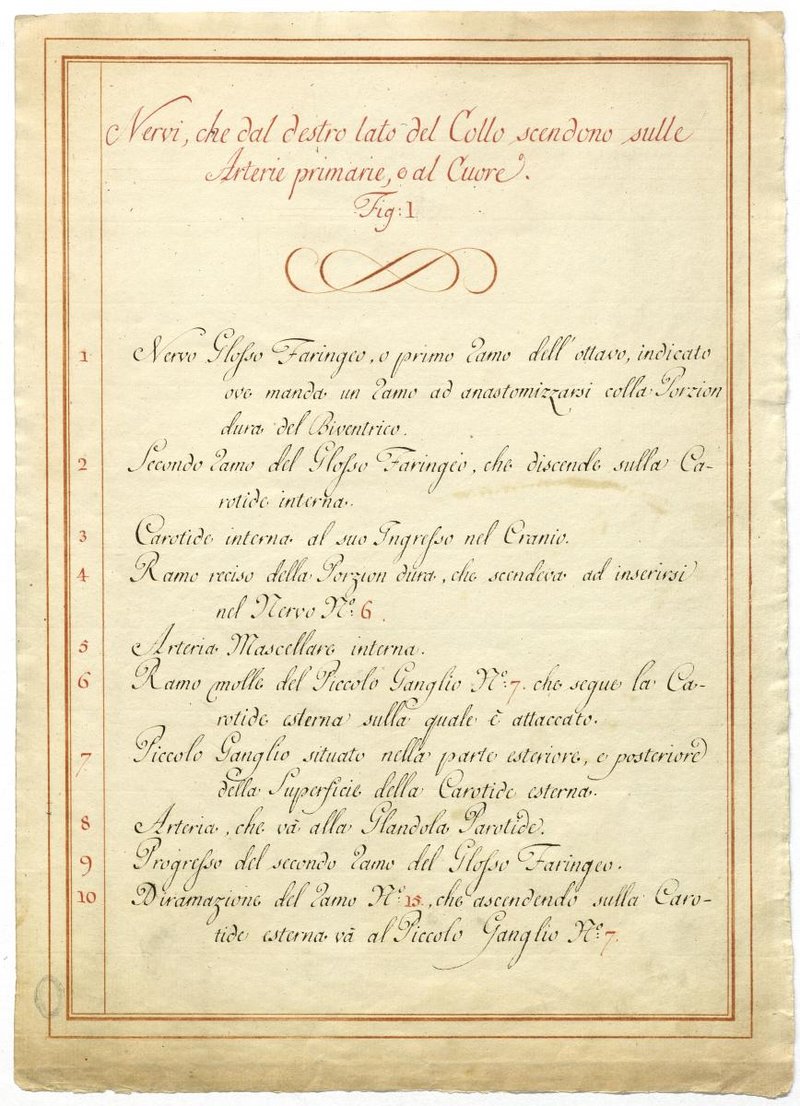 Nervi, che dal destro lato del Collo scendono sulle
Arterie primarie, o al Cuore.
Fig: 1
1 Nervo Glosso Faringeo, o primo ramo dell' ottavo, indicato
ove manda un ramo ad anastomizzarsi colla Porzion
dura del Biventrico.
2 Secondo ramo del Glosso Faringeo, che discende sulla Ca-
rotide interna.
3 Carotide interna al suo Ingresso nel Cranio.
4 Ramo reciso della Porzion dura, che scendeva ad inserirsi
nel Nervo N.º 6.
5 Arteria Mascellare interna.
6 Ramo molle del Piccolo Ganglio N.º 7. che segue la Ca-
rotide esterna sulla quale è attaccato.
7 Piccolo Ganglio situato nella parte esteriore, e posteriore
della Superficie della Carotide esterna.
8 Arteria, che và alla Glandola Parotide.
9 Progresso del secondo ramo del Glosso Faringeo.
10 Diramazione del ramo N.º 15., che ascendendo sulla Caro-
tide esterna và al Piccolo Ganglio N.º 7.